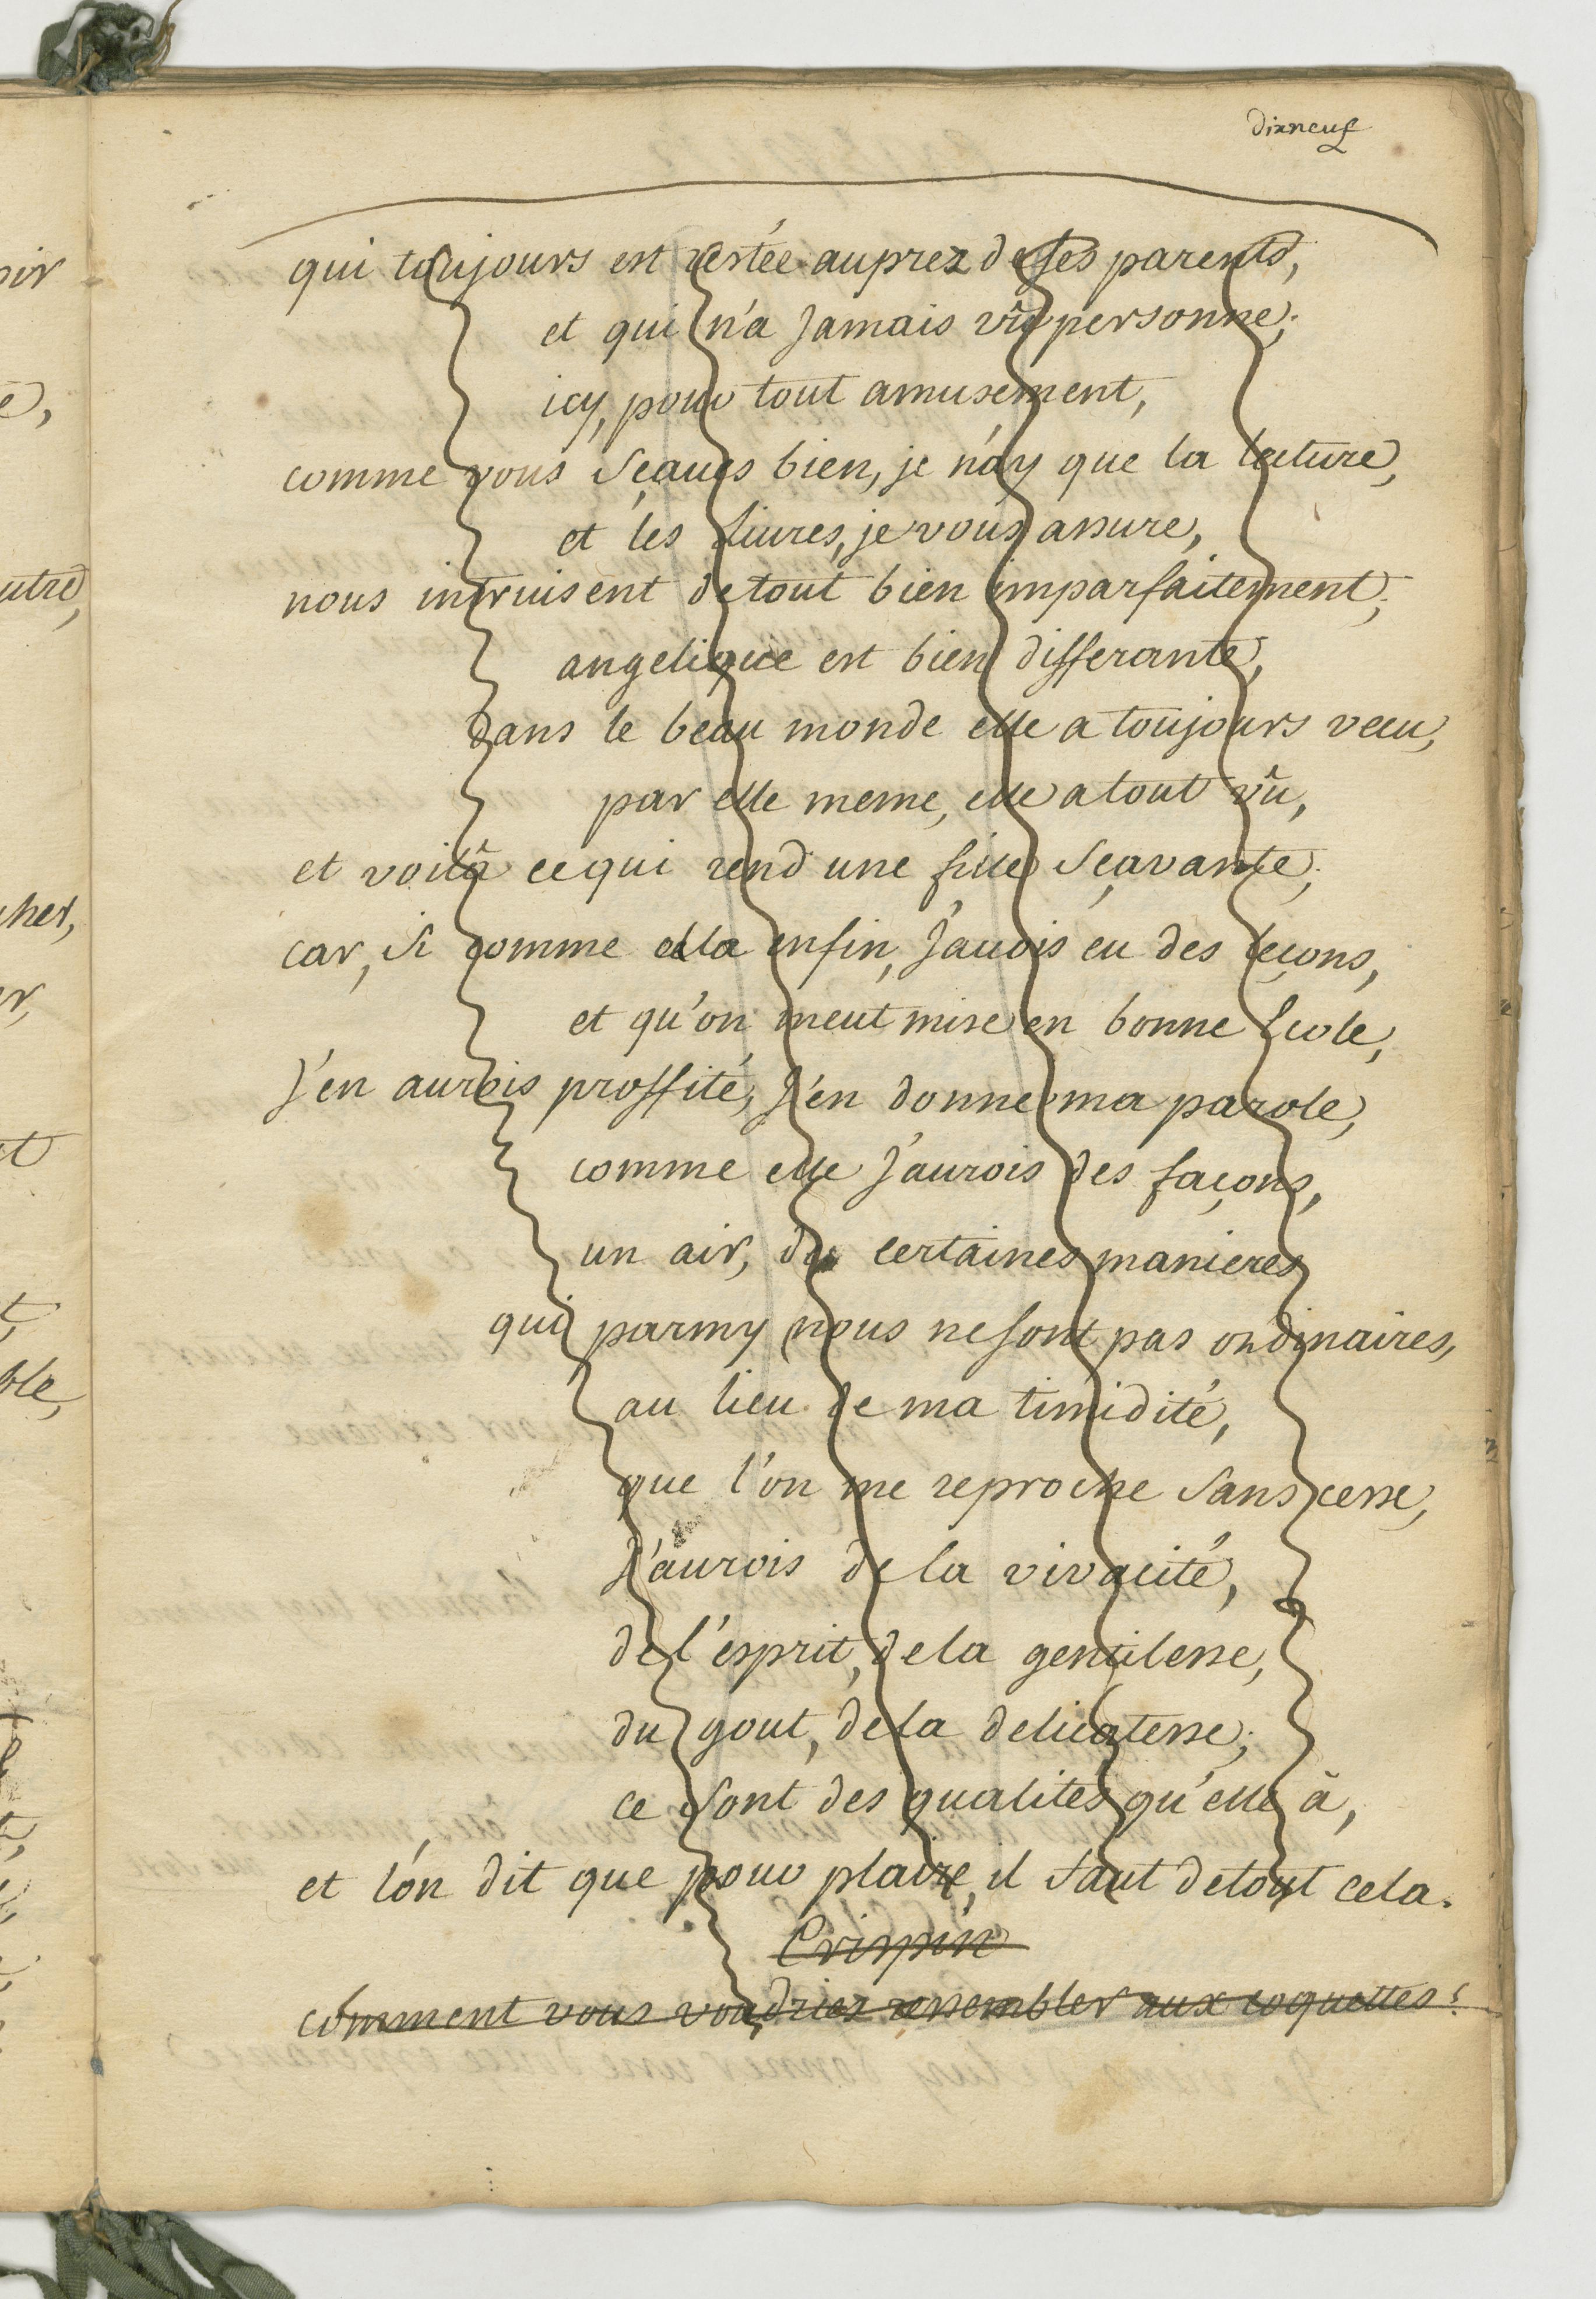 dixneuf
qui toujours est restée auprez de ses parents,
et qui n'a jamais vû personne;
icy, pour tout amusement,
comme vous sçaues bien, je n'ay que la lecture,
et les Liures, je vous assure,
nous intruisent de tout bien imparfaitement;
angelique est bien differante,
dans le beau monde elle a toujours vecu,
par elle meme, elle a tout vû,
et voilà ce qui rend une fille sçavante;
car, si comme ella enfin, j'auois eu des leçons,
et qu'on meut mise en bonne Ecole,
j'en aurois proffité, j'en donne ma parole,
comme elle j'aurois des façons,
un air, de certaines manieres
qui parmy nous ne sont pas ordinaires,
au lieu de ma timidité,
que l'on me reproche sans cesse,
j'aurois de la vivacité,
de l'esprit, de la gentilesse,
du gout, de la delicatesse;
ce sont des qualités qu'elle à,
et l'on dit que pour plaire, il faut de tout cela.
Crispin
comment vous voudriez ressembler aux coquettes?